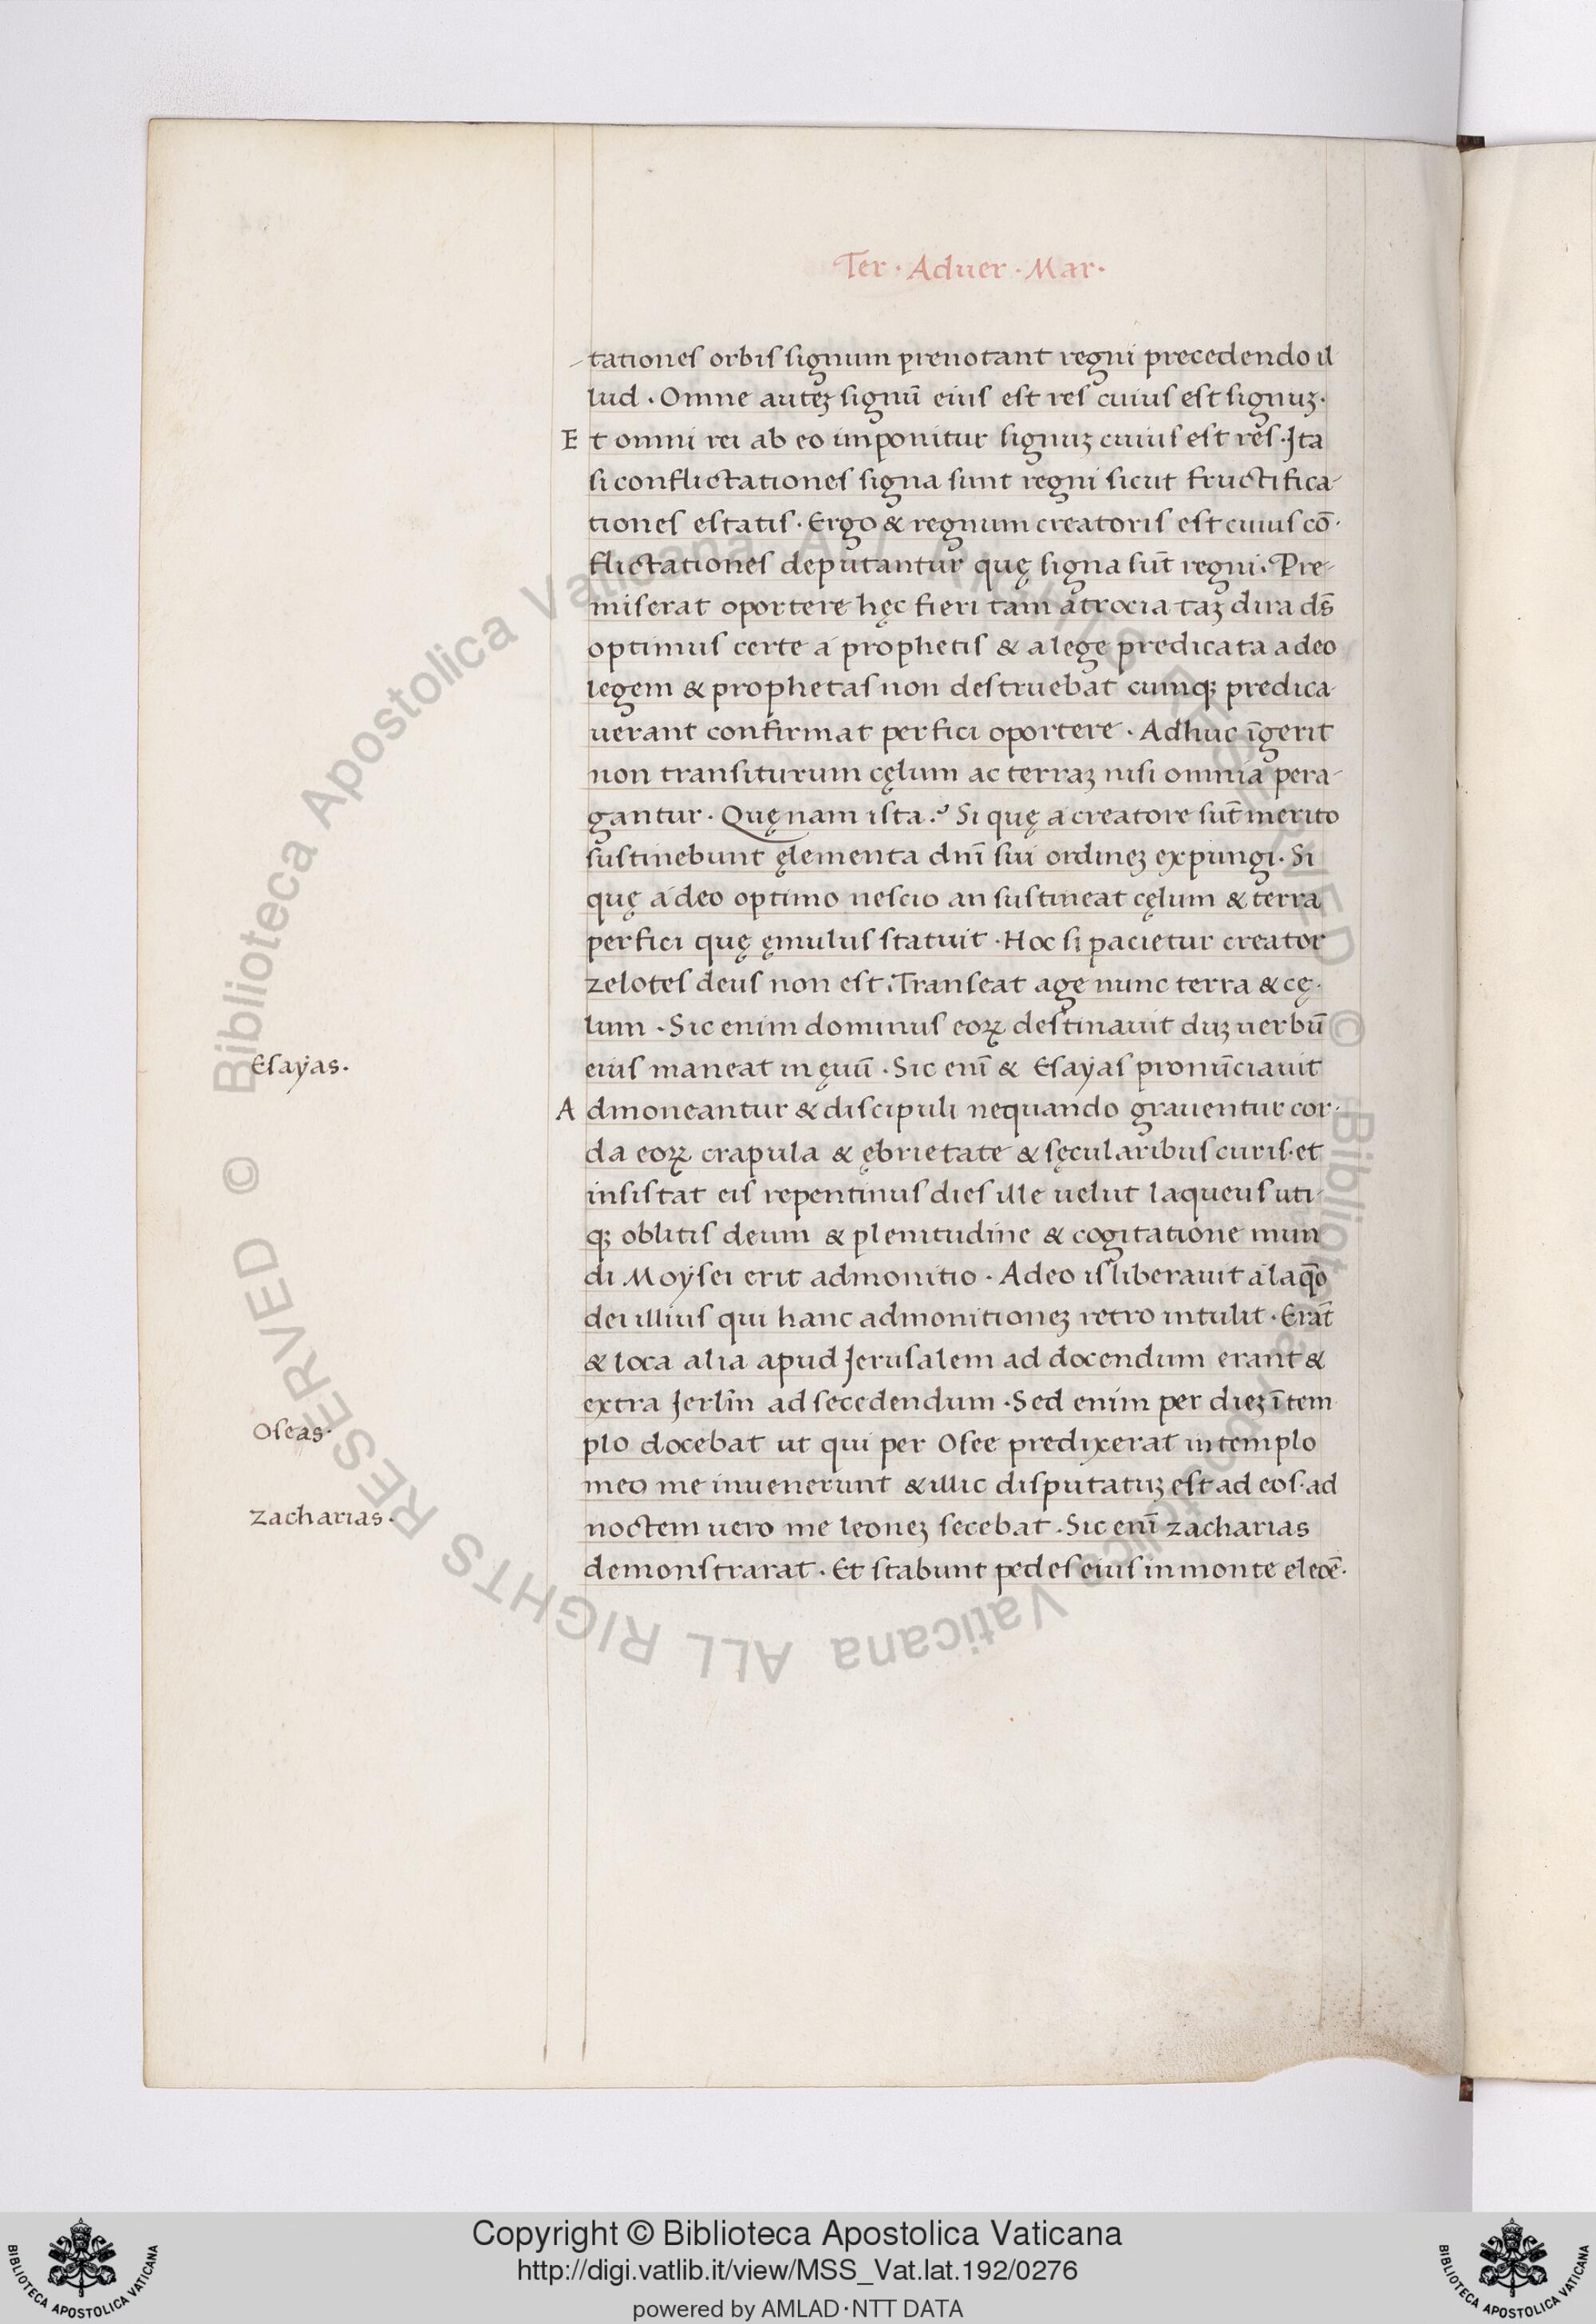 Ter · Aduer · Mar ·
tationes orbis signum prenotant regni precedendo il
lud · Omne auteꝫ signū eius est res cuius est signuꝫ ·
Et omni rei ab eo imponitur signuꝫ cuius est res · Ita
si conflictationes signa sunt regni sicut fructifica-
tiones estatis · Ergo & regnum creatoris est cuius cō-
flictationes deputantur quę signa sūt regni · Pre-
miserat oportere hęc fieri tam atrocia taꝫ dira ds̄
optimus certe a prophetis & a lege predicata adeo
legem & prophetas non destruebat cumqꝫ predica-
uerant confirmat perfici oportere · Adhuc īgerit
non transiturum cęlum ac terraꝫ nisi omnia pera-
gantur · Quęnam ista ? Si quę a creatore sūt merito
sustinebunt ęlementa dnī sui ordineꝫ expungi · Si
quę a deo optimo nescio an sustineat cęlum & terra
perfici quę ęmulus statuit · Hoc si pacietur creator
zelotes deus non est · Transeat age nunc terra & cę-
lum · Sic enim dominus eoꝝ destinauit duꝫ uerbū
Esaẏas ·
eius maneat in ęuū · Sic enī & Esaẏas pronūciauit
Admoneantur & discipuli nequando grauentur cor-
da eoꝝ crapula & ębrietate & sęcularibus curis · et
insistat eis repentinus dies ille uelut laqueus uti-
qꝫ oblitis deum & plenitudine & cogitatione mun
di Moẏsei erit admonitio · Adeo is liberauit a laq̄o
dei illius qui hanc admonitioneꝫ retro intulit · Erāt
& loca alia apud Jerusalem ad docendum erant &
extra Jerl̄m ad secedendum · Sed enim per dieꝫ ītem
Oseas ·
plo docebat ut qui per Osee predixerat in templo
meo me inuenerunt & illic disputatuꝫ est ad eos · ad
zacharias ·
noctem uero me leoneꝫ secebat · Sic enī zacharias
demonstrarat · Et stabunt pedes eius in monte eleoē ·
© Biblioteca Apostolica Vaticana ALL RIGHTS RESERVED © Biblioteca Apostolica Vaticana ALL RIGHTS RESERVED
Copyright © Biblioteca Apostolica Vaticana
http://digi.vatlib.it/view/MSS_Vat.lat.192/0276
powered by AMLAD·NTT DATA
BIBLIOTECA APOSTOLICA VATICANA
BIBLIOTECA APOSTOLICA VATICANA